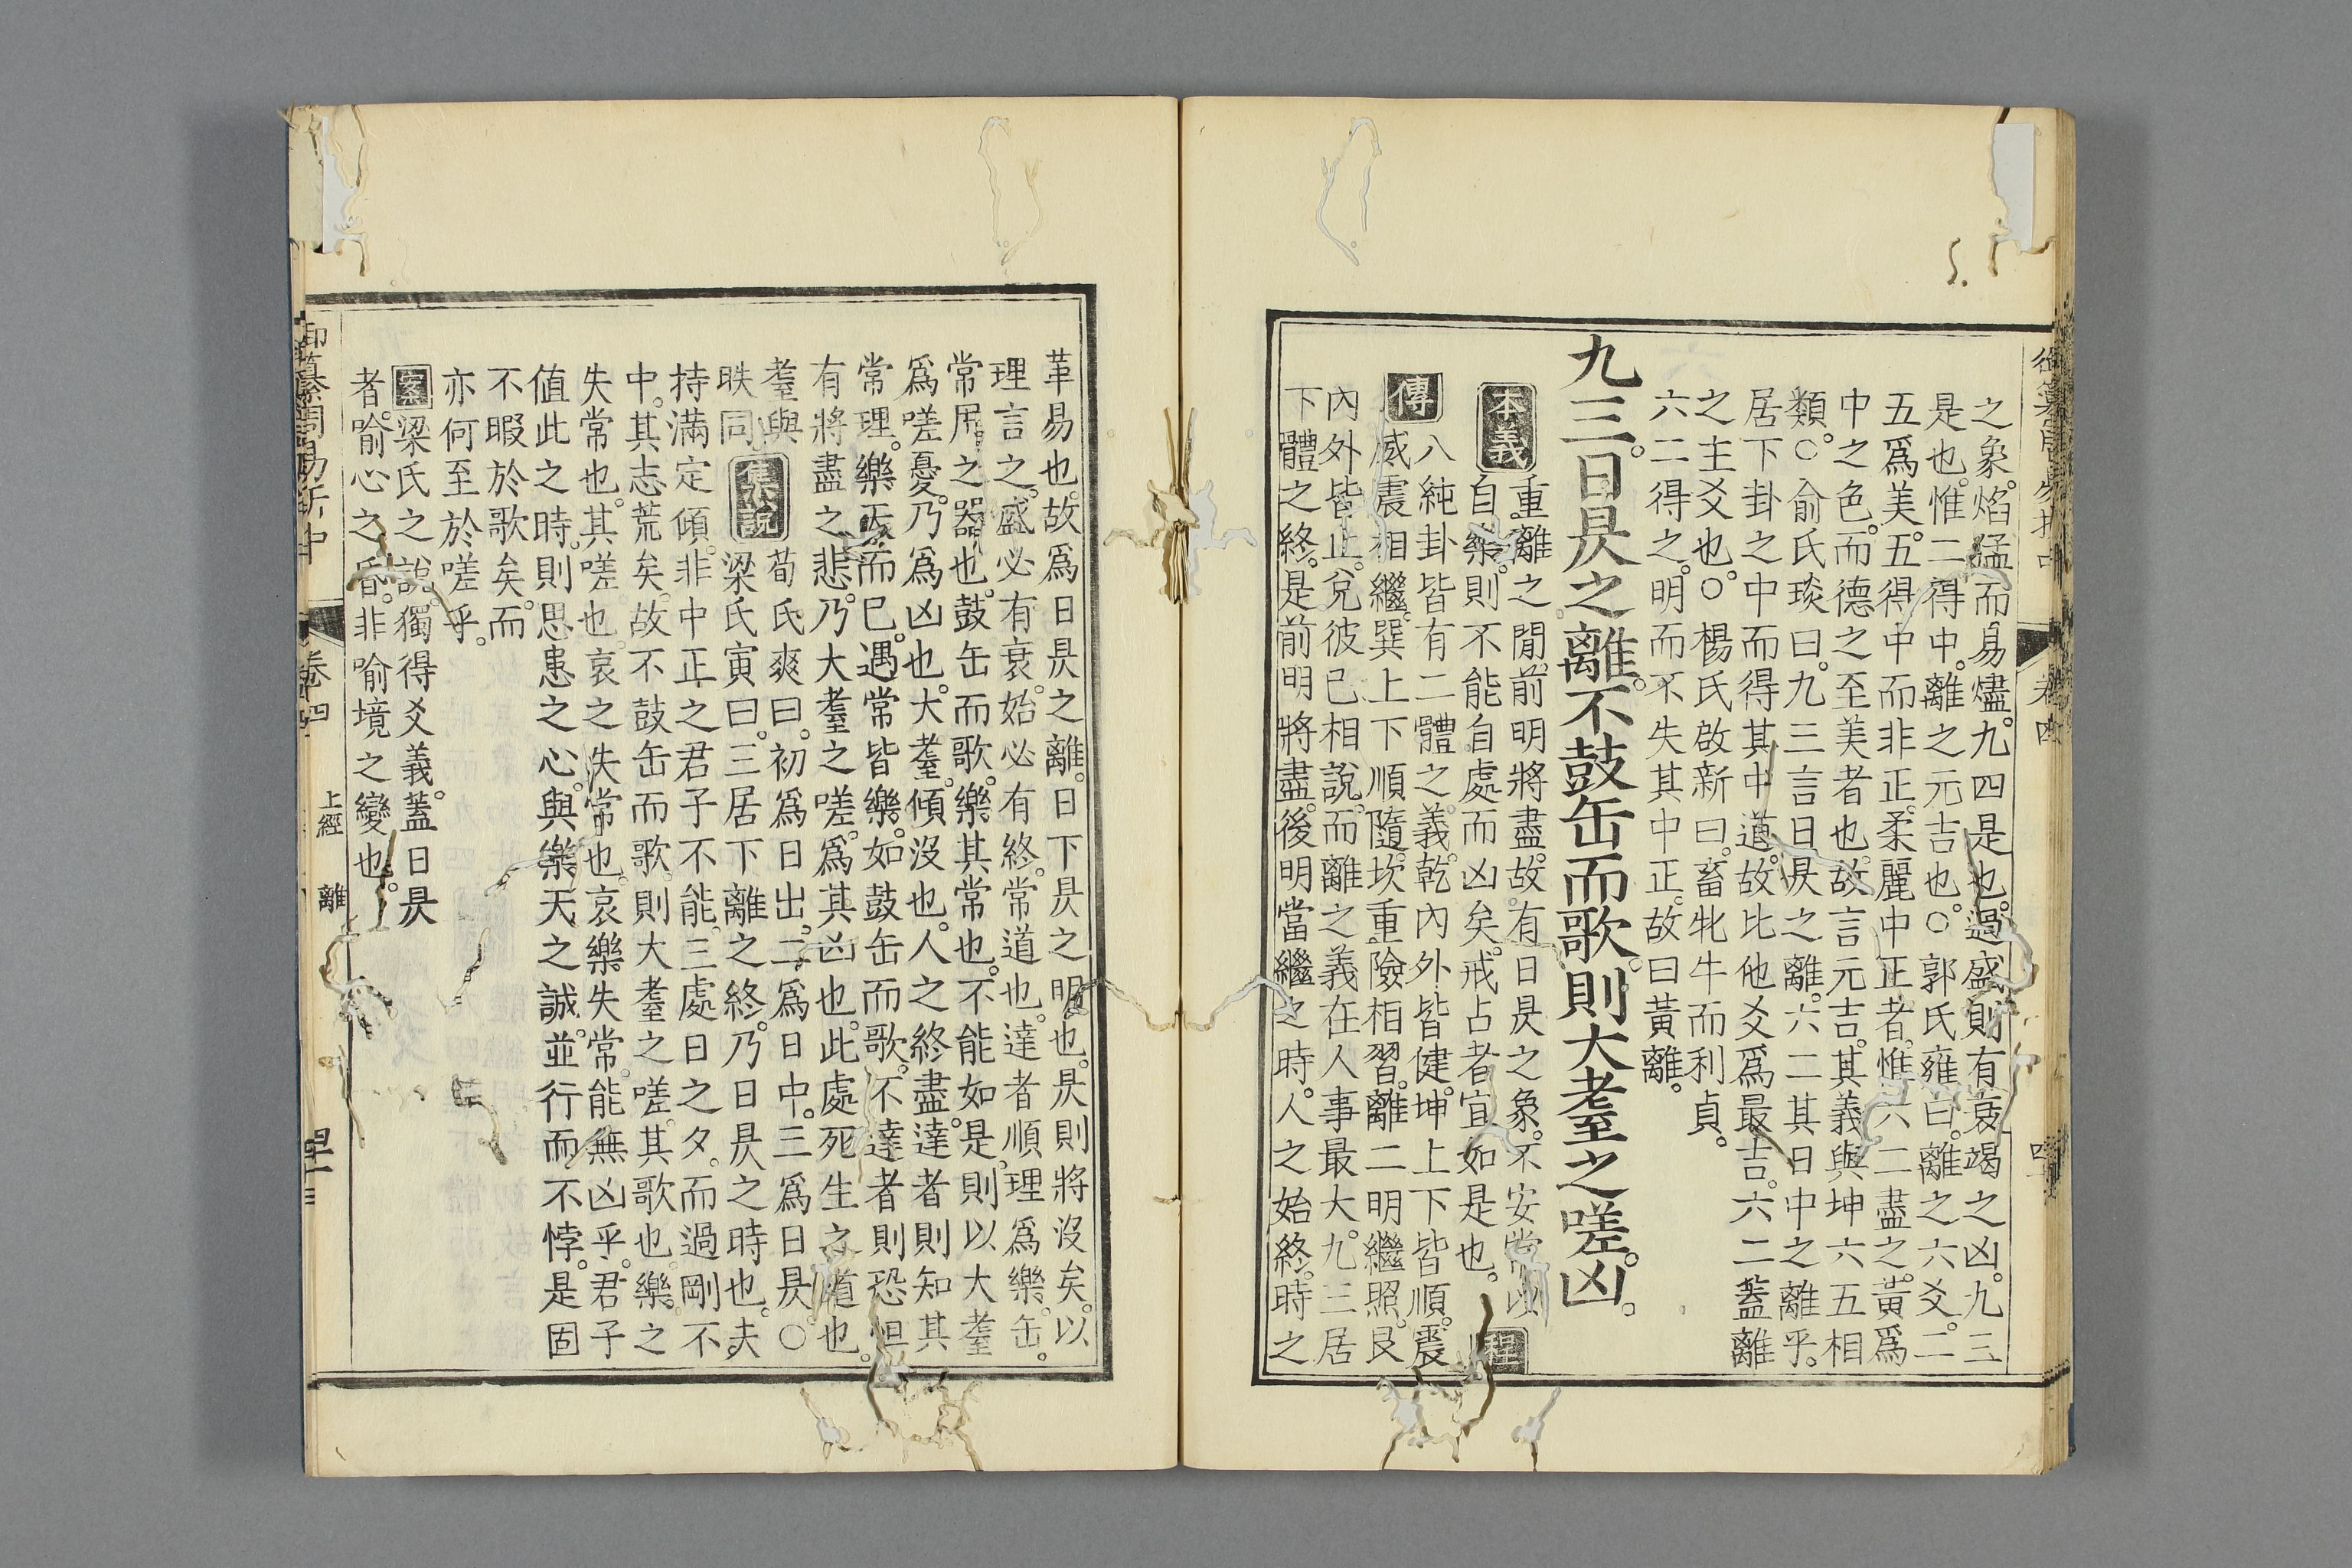 之象。焰猛而易燼。九四是也。過盛則有衰竭之凶。九三
是也。惟二得中。離之元吉也。○郭氏雍曰。離之六爻。二
五爲美。五得中而非正。柔麗中正者。惟六二盡之。黃爲
中之色。而德之至美者也。故言元吉。其義與坤六五相
類。○俞氏琰曰。九三言日昃之離。六二其日中之離乎。
居下卦之中而得其中道。故比他爻爲最吉。六二蓋離
之主爻也。○楊氏啟新曰。畜牝牛而利貞。
六二得之。明而不失其中正。故曰黃離。
九三。日昃之離。不鼓缶而歌。則大耋之嗟。凶。
本義 重離之閒。前明將盡。故有日昃之象。不安常以
自樂。則不能自處而凶矣。戒占者宜如是也。 程
傳 八純卦皆有二體之義。乾內外皆健。坤上下皆順。震
威震相繼。巽上下順隨。坎重險相習。離二明繼照。艮
內外皆止。兌彼己相說。而離之義在人事最大。九三居
下體之終。是前明將盡。後明當繼之時。人之始終。時之
革易也。故爲日昃之離。日下昃之明也。昃則將沒矣。以
理言之。盛必有衰。始必有終。常道也。達者順理爲樂。缶。
常用之器也。鼓缶而歌。樂其常也。不能如是。則以大耋
爲嗟憂。乃爲凶也。大耋。傾沒也。人之終盡。達者則知其
常理。樂天而已。遇常皆樂。如鼓缶而歌。不達者則恐怛
有將盡之悲。乃大耋之嗟。爲其凶也。此處死生之道也。
耋與
昳同。 集說 荀氏爽曰。初爲日出。二爲日中。三爲日昃。○
梁氏寅曰。三居下離之終。乃日昃之時也。夫
持滿定傾。非中正之君子不能。三處日之夕。而過剛不
中。其志荒矣。故不鼓缶而歌。則大耋之嗟。其歌也。樂之
失常也。其嗟也。哀之失常也。哀樂失常。能無凶乎。君子
値此之時。則思患之心。與樂天之誠。並行而不悖。是固
不暇於歌矣。而
亦何至於嗟乎。
案 梁氏之說。獨得爻義。蓋日昃
者。喻心之昏。非喻境之變也。
御纂周易折中 卷四 上經 離